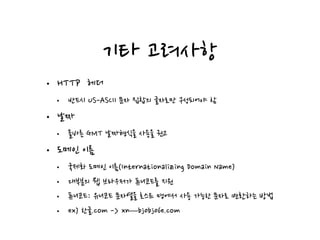 기타 고려사항
• HTTP 헤더
• 반드시 US-ASCII 문자 집합의 글자로만 구성되어야 함
• 날짜
• 올바른 GMT 날짜형식을 사용을 권고
• 도메인 이름
• 국제화 도메인 이름(Internationalizing Domain Name)
• 대부분의 웹 브라우저가 퓨니코드를 지원
• 퓨니코드: 유니코드 문자열을 호스트 명에서 사용 가능한 문자로 변환하는 방법
• ex) 한글.com -> xn—bj0bj06e.com